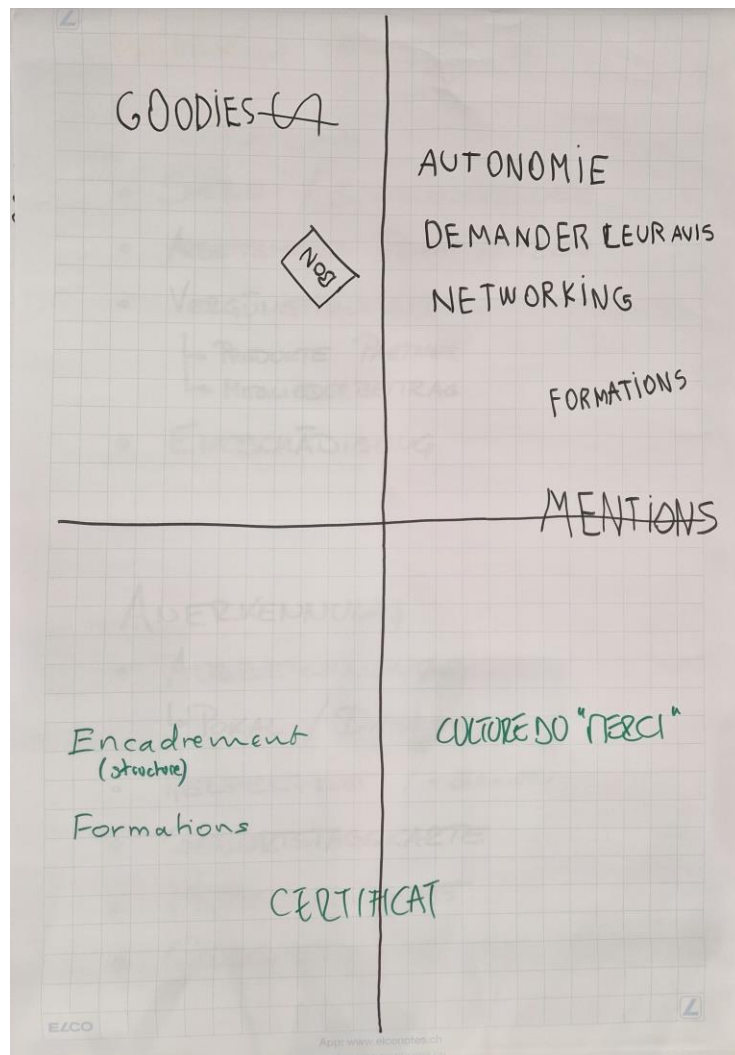 GOODIES
BON
AUTONOMIE
DEMANDER LEUR AVIS
NETWORKING
FORMATIONS
MENTIONS
Encadrement
(structure)
Formations
CULTURE DU "MERCI"
CERTIFICAT
ELCO
App: www.elconotes.ch